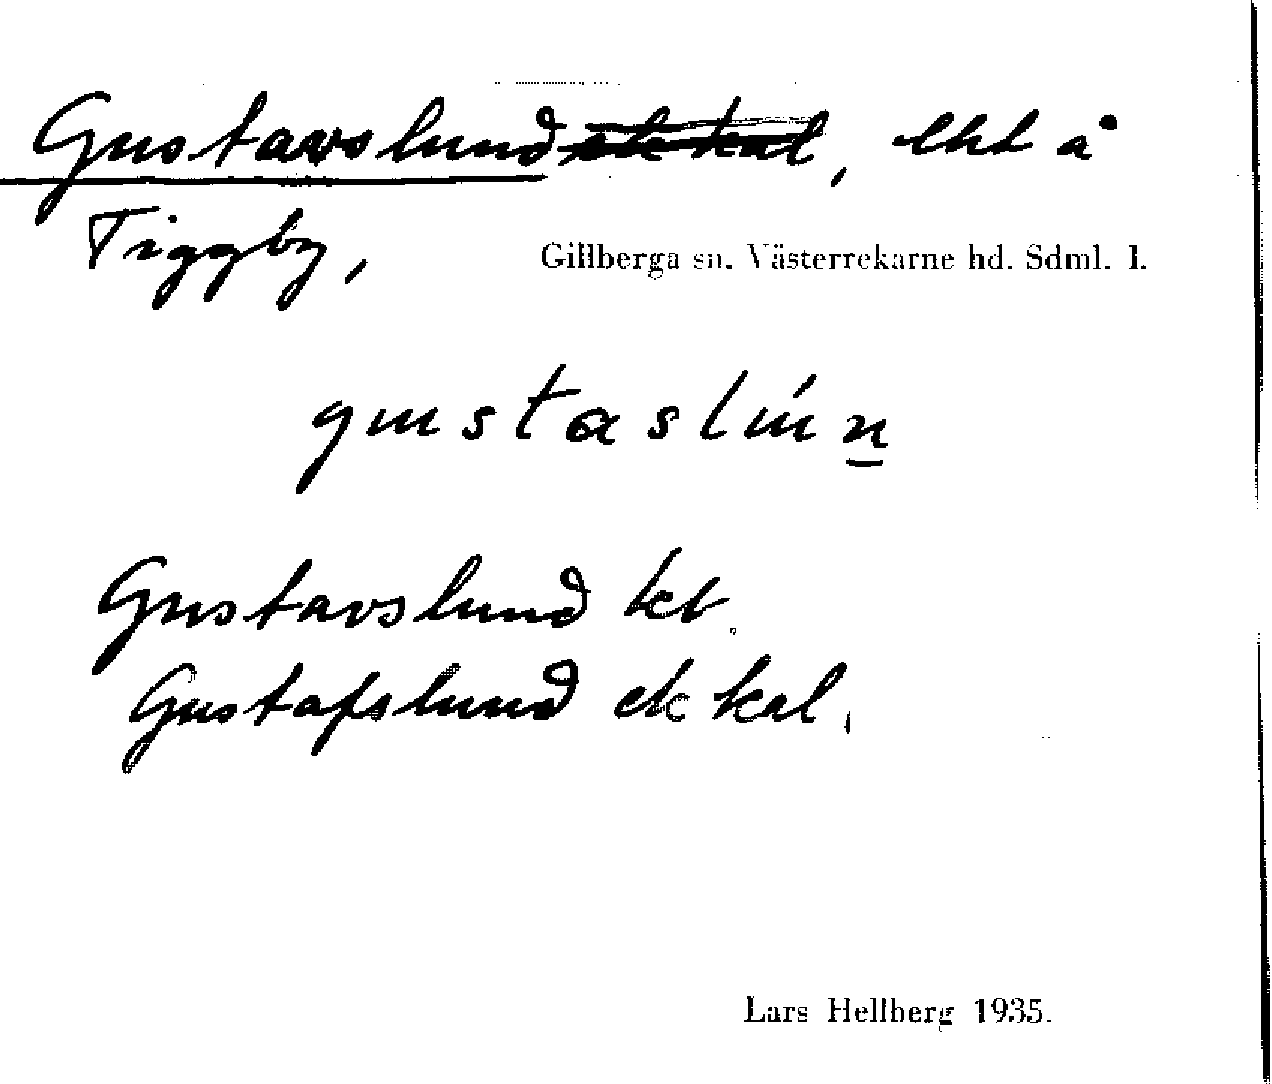 Gustavslund ek kal, lht å
Tiggby, Gillberga sn. Västerrekarne hd. Sdml. l.
gustaslún̲
Gustavslund kt.
Gustafslund ek kal.
Lars Hellberg 1935.